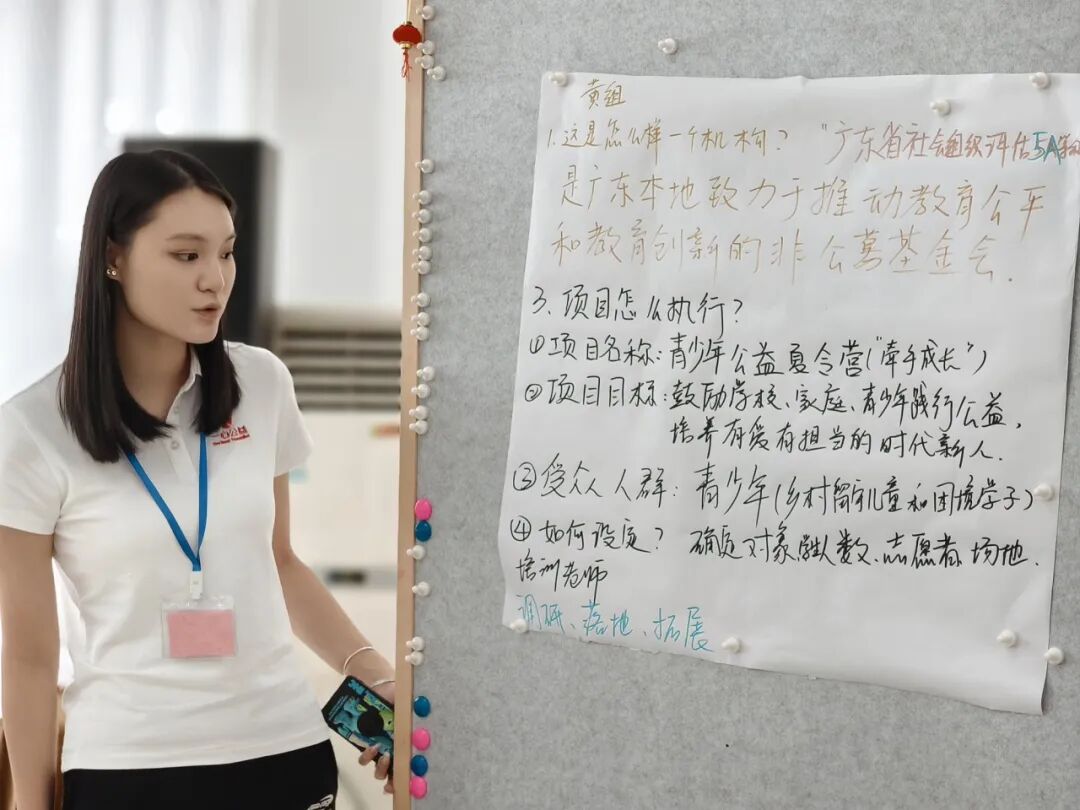 黄组
1.这是怎么样一个机构? "广东省社会组织评估5A
是广东本地致力于推动教育公平
和教育创新的非公募基金会.
3.项目怎么执行?
①项目名称:青少年公益夏令营("牵手成长")
②项目目标:鼓励学校、家庭、青少年践行公益,
培养有爱有担当的时代新人.
③受众人群:青少年(乡村留守儿童和困境学子)
④如何设定? 确定对象学人数、志愿者、场地.
培训老师
调研、落地、拓展
公益